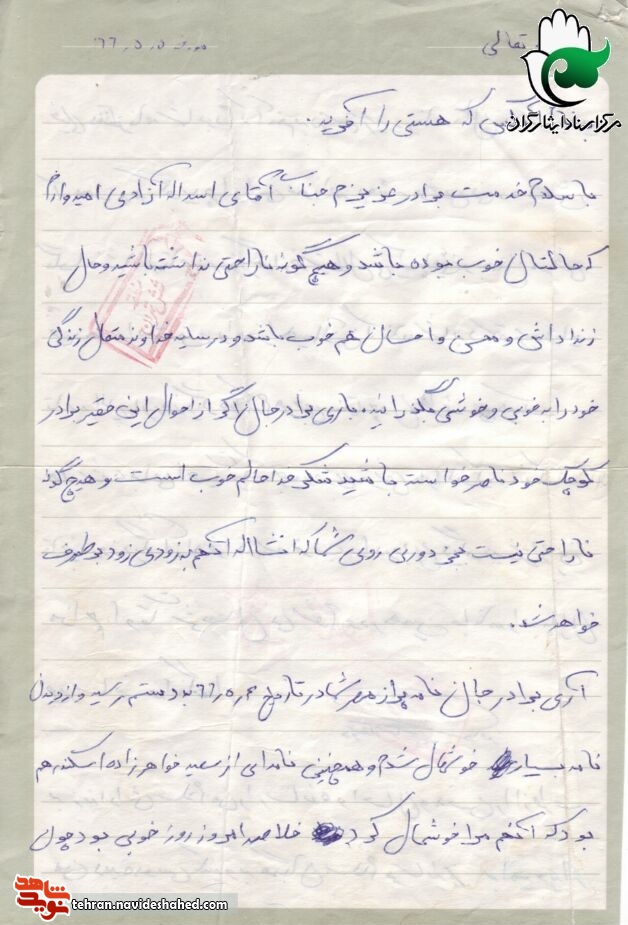 تعالی
مرکز اسناد ایثارگران
کسی که هستی را آفرید.
با سلام خدمت برادر عزیزم جناب آقای اسداله آزادی امیدوارم
که حالتان خوب بوده باشد و هیچ گونه ناراحتی نداشته باشید و حال
زنداداش و محسن و احسان هم خوب باشد و در سایه خداوند متعال زندگی
خود را به خوبی و خوشی بگذرانید. باری برادر جان اگر از احوال این حقیر برادر
کوچک خود ناصر خواسته باشید شکر خدا حالم خوب است و هیچ گونه
ناراحتی نیست بجز دوری روی شما که انشااله آنهم به زودی زود برطرف
خواهد شد.
آری برادر جان نامه پر از مهر شما در تاریخ ۶۶٫۵٫۴ بدستم رسید و از دیدن
نامه بسیار خوشحال شدم و همچنین نامه‌ای از سعید خواهرزاده اسکندر هم
بود که آنهم مرا خوشحال کرد خلاصه امروز روز خوبی بود چون
شاهد
نوید
tehran.navideshahed.com